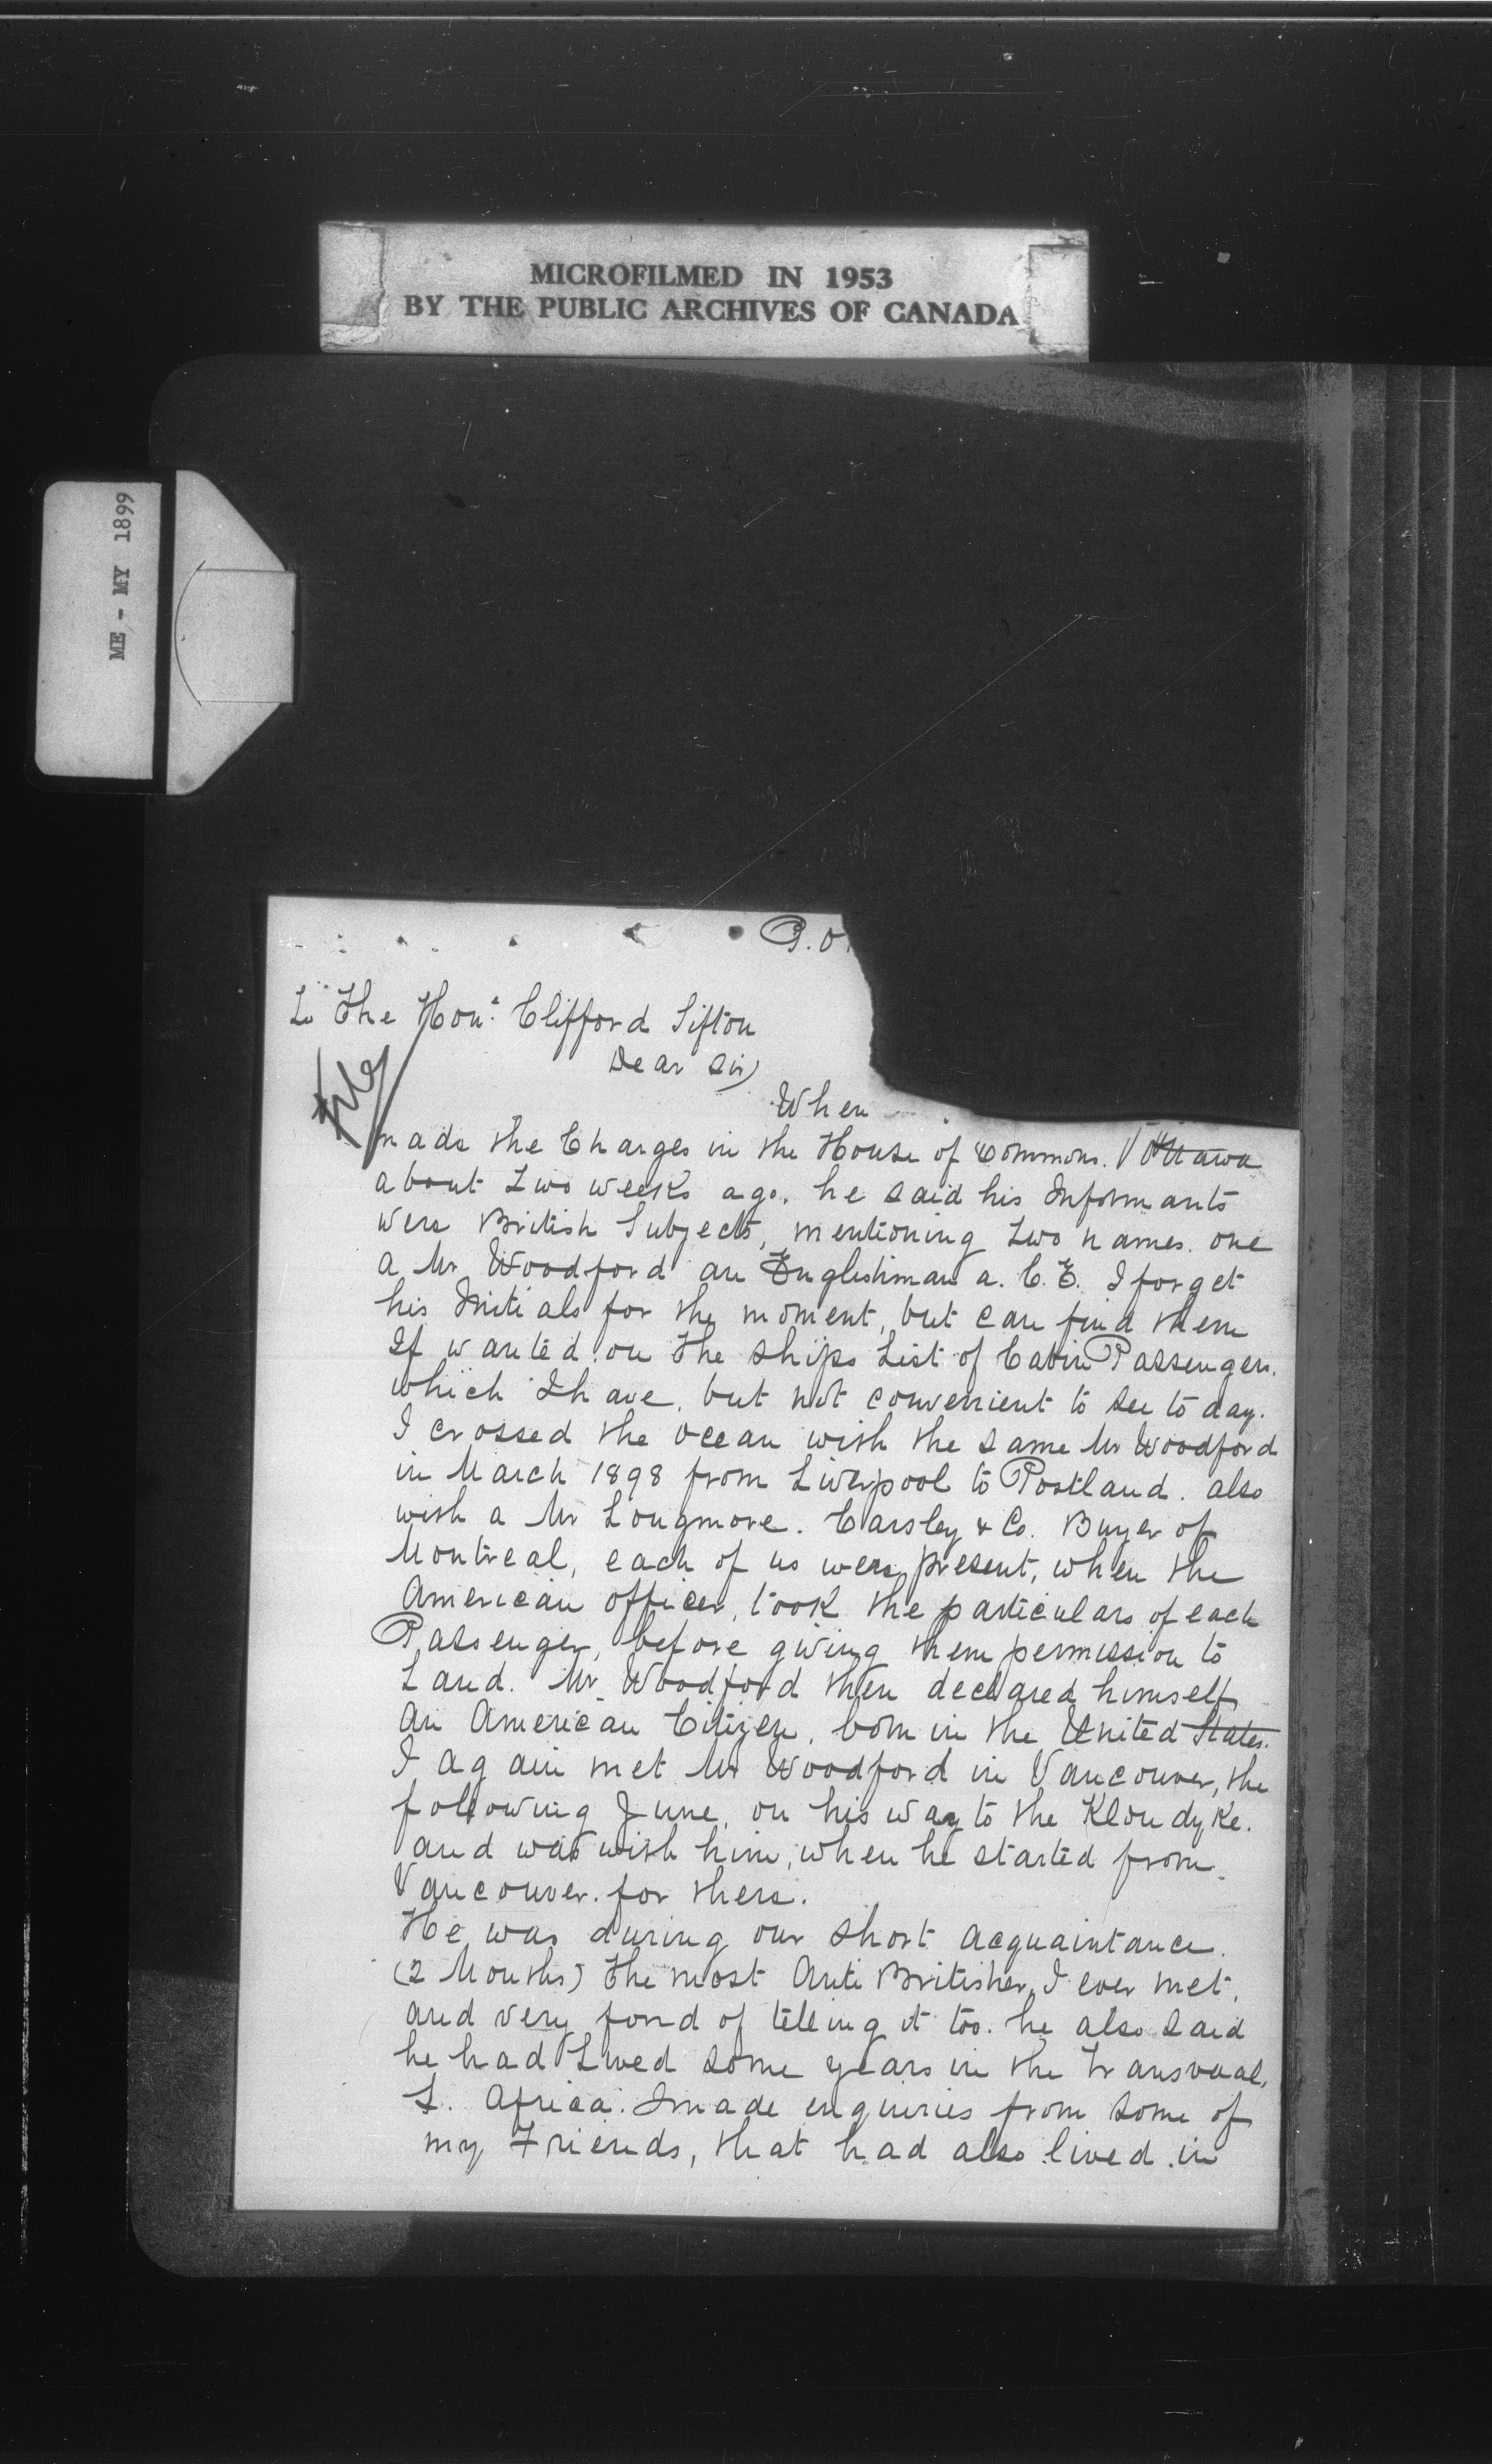 MICROFILMED IN 1953
BY THE PUBLIC ARCHIVES OF CANADA
ME - MY 1899
P.O.
To The Hon. Clifford Sifton
Dear Sir,
File
When
made the Charges in the House of Commons. Ottawa
about Two weeks ago, he said his Informants
were British Subjects, mentioning two names. one
a Mr Woodford an Englishman a. C.E. I forget
his Initials for the moment, but can find them
If wanted, on the ships List of Cabin Passengers.
which I have, but not convenient to see to day.
I crossed the ocean with the same Mr Woodford
in March 1898 from Liverpool to Portland. also
with a Mr Longmore. Carsley & Co. Buyer of
Montreal, each of us were present, when the
American officer, took the particulars of each
Passenger, before giving them permission to
Land. Mr Woodford then declared himself
An American Citizen, born in the United States.
I again met Mr Woodford in Vancouver, the
following June, on his way to the Klondyke.
and was with him, when he started from
Vancouver. for there.
He was during our short acquaintance.
(2 Months) the most Anti Britisher, I ever met,
and very fond of telling it too. he also said
he had Lived some years in the Transvaal,
S. Africa. I made enquiries from some of
my Friends, that had also lived in